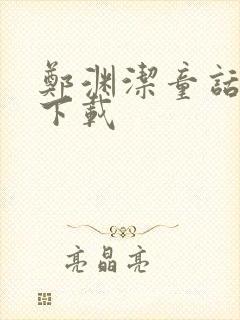 鄭渊潔童話
下載
亮晶亮